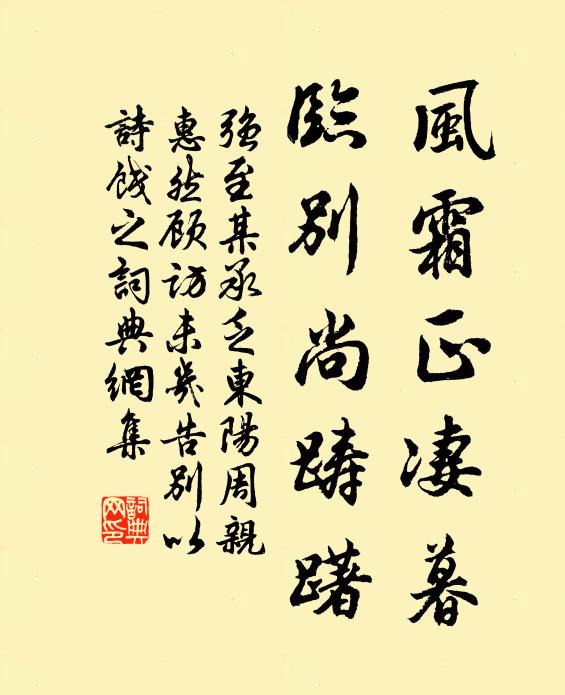 風霜正凄暮
臨別尚踌躇
强至某承乏東陽周親
惠然顾訪未幾告別以
詩餞之詞典網集
詞典
网印